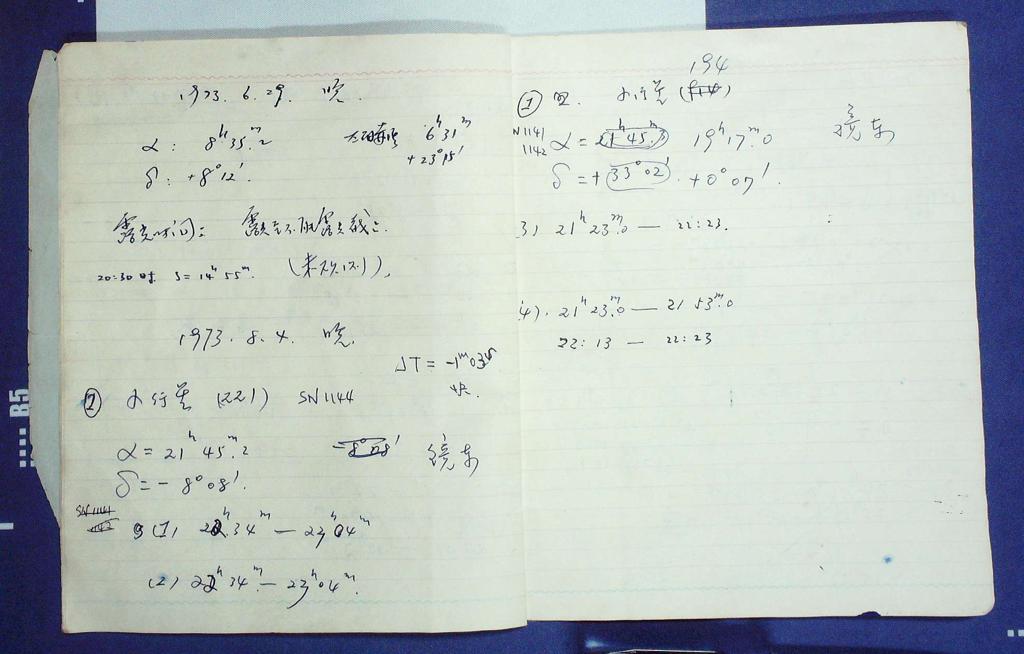 1973. 6. 29. 晚.
α: 8ʰ35ᵐ.2 6ʰ31ᵐ
+23°15′
δ: +8°12′.
露光时间:
20:30 时. S=14ʰ55ᵐ.
1973. 8. 4. 晚.
ΔT = -1ᵐ03ˢ
快.
② 小行星 (221) SN1144
α = 21ʰ45ᵐ.2 -8°08′ 镜东
δ = -8°08′.
SN1141
1142
(1) 22ʰ34ᵐ — 23ʰ04ᵐ
(2) 22ʰ34ᵐ — 23ʰ04ᵐ.
194
① 小行星 (914)
N1141
1142
α = 21ʰ45ᵐ.3 19ʰ17ᵐ.0 镜东
δ = +33°02′. +0°07′.
3) 21ʰ23ᵐ.0 — 22:23.
4). 21ʰ23ᵐ.0 — 21ʰ53ᵐ.0
22:13 — 22:23
B5